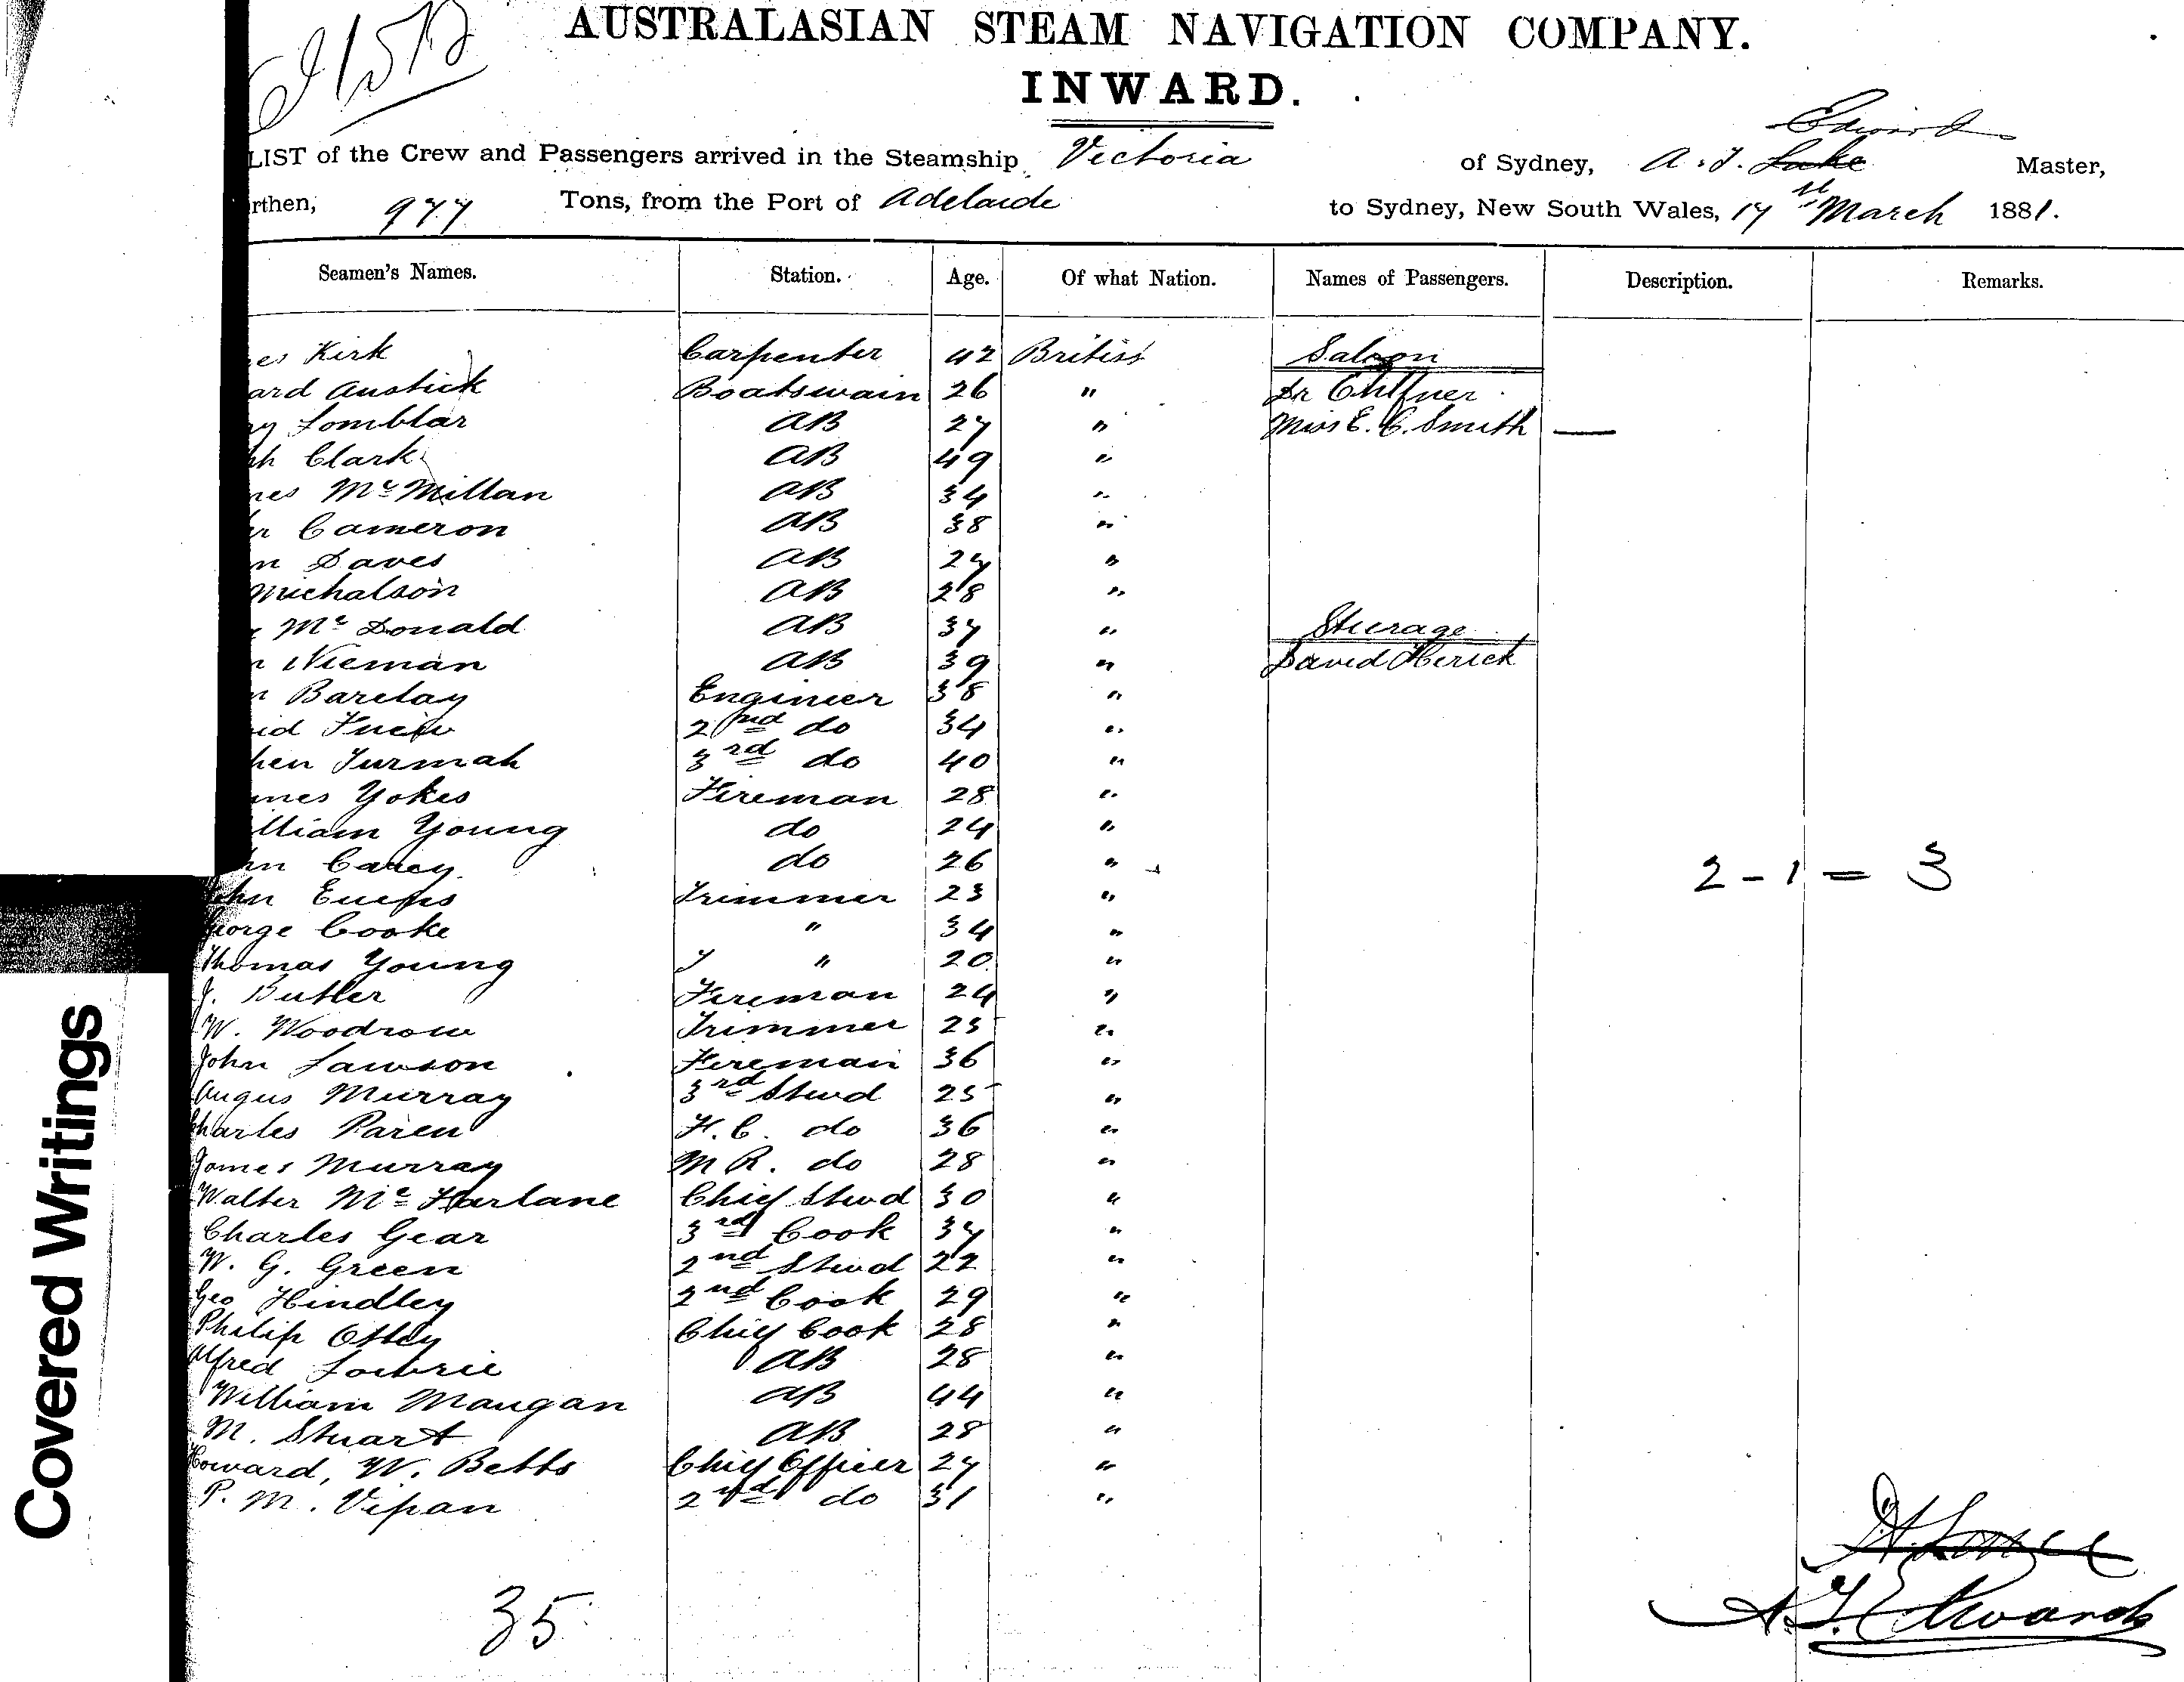 AUSTRALASIAN STEAM NAVIGATION COMPANY.
INWARD.
Edward
LIST of the Crew and Passengers arrived in the Steamship Victoria of Sydney, A. T. Lake Master,
rthen, 977 Tons, from the Port of Adelaide to Sydney, New South Wales, 17 March 1881.
Seamen's Names. Station. Age. Of what Nation. Names of Passengers. Description. Remarks.
es Kirk Carpenter 42 British Saloon
ard Austick Boatswain 26 "
y Lomblar AB 27 " Miss E. C. Smith —
ph Clark AB 49 "
mes Mc Millan AB 34 "
er Cameron AB 38 "
n Daves AB 27 "
Michalson AB 28 "
Mc Donald AB 37 " Steerage
n Nieman AB 39 " David Herick
n Barclay Engineer 38 "
id 2nd do 34 "
hen Turmah 3rd do 40 "
mes Yokes Fireman 28 "
lliam Young do 24 "
hn Carey. do 26 "
2 - 1 = 3
ohn Trimmer 23 "
George Cooke " 34 "
Thomas Young " 20 "
J. Butler Fireman 24 "
W. Woodrow Trimmer 25 "
John Lawson Fireman 36 "
Angus Murray 3rd Stwd 25 "
Charles Paren F. C. do 36 "
James Murray M R. do 28 "
Walter Mc Farlane Chief Stwd 30 "
Charles Gear 3rd Cook 37 "
W. G. Green 2nd Stwd 22 "
Geo Hindley 2nd Cook 29 "
Philip Ottey Chief Cook 28 "
Alfred Lowrie AB 28 "
William Mangan AB 44 "
M. Stuart AB 28 "
Howard, W. Betts Chief Officer 27 "
P. M. Vipan 2nd do 31 "
35
A. T. Edwards
Covered Writings